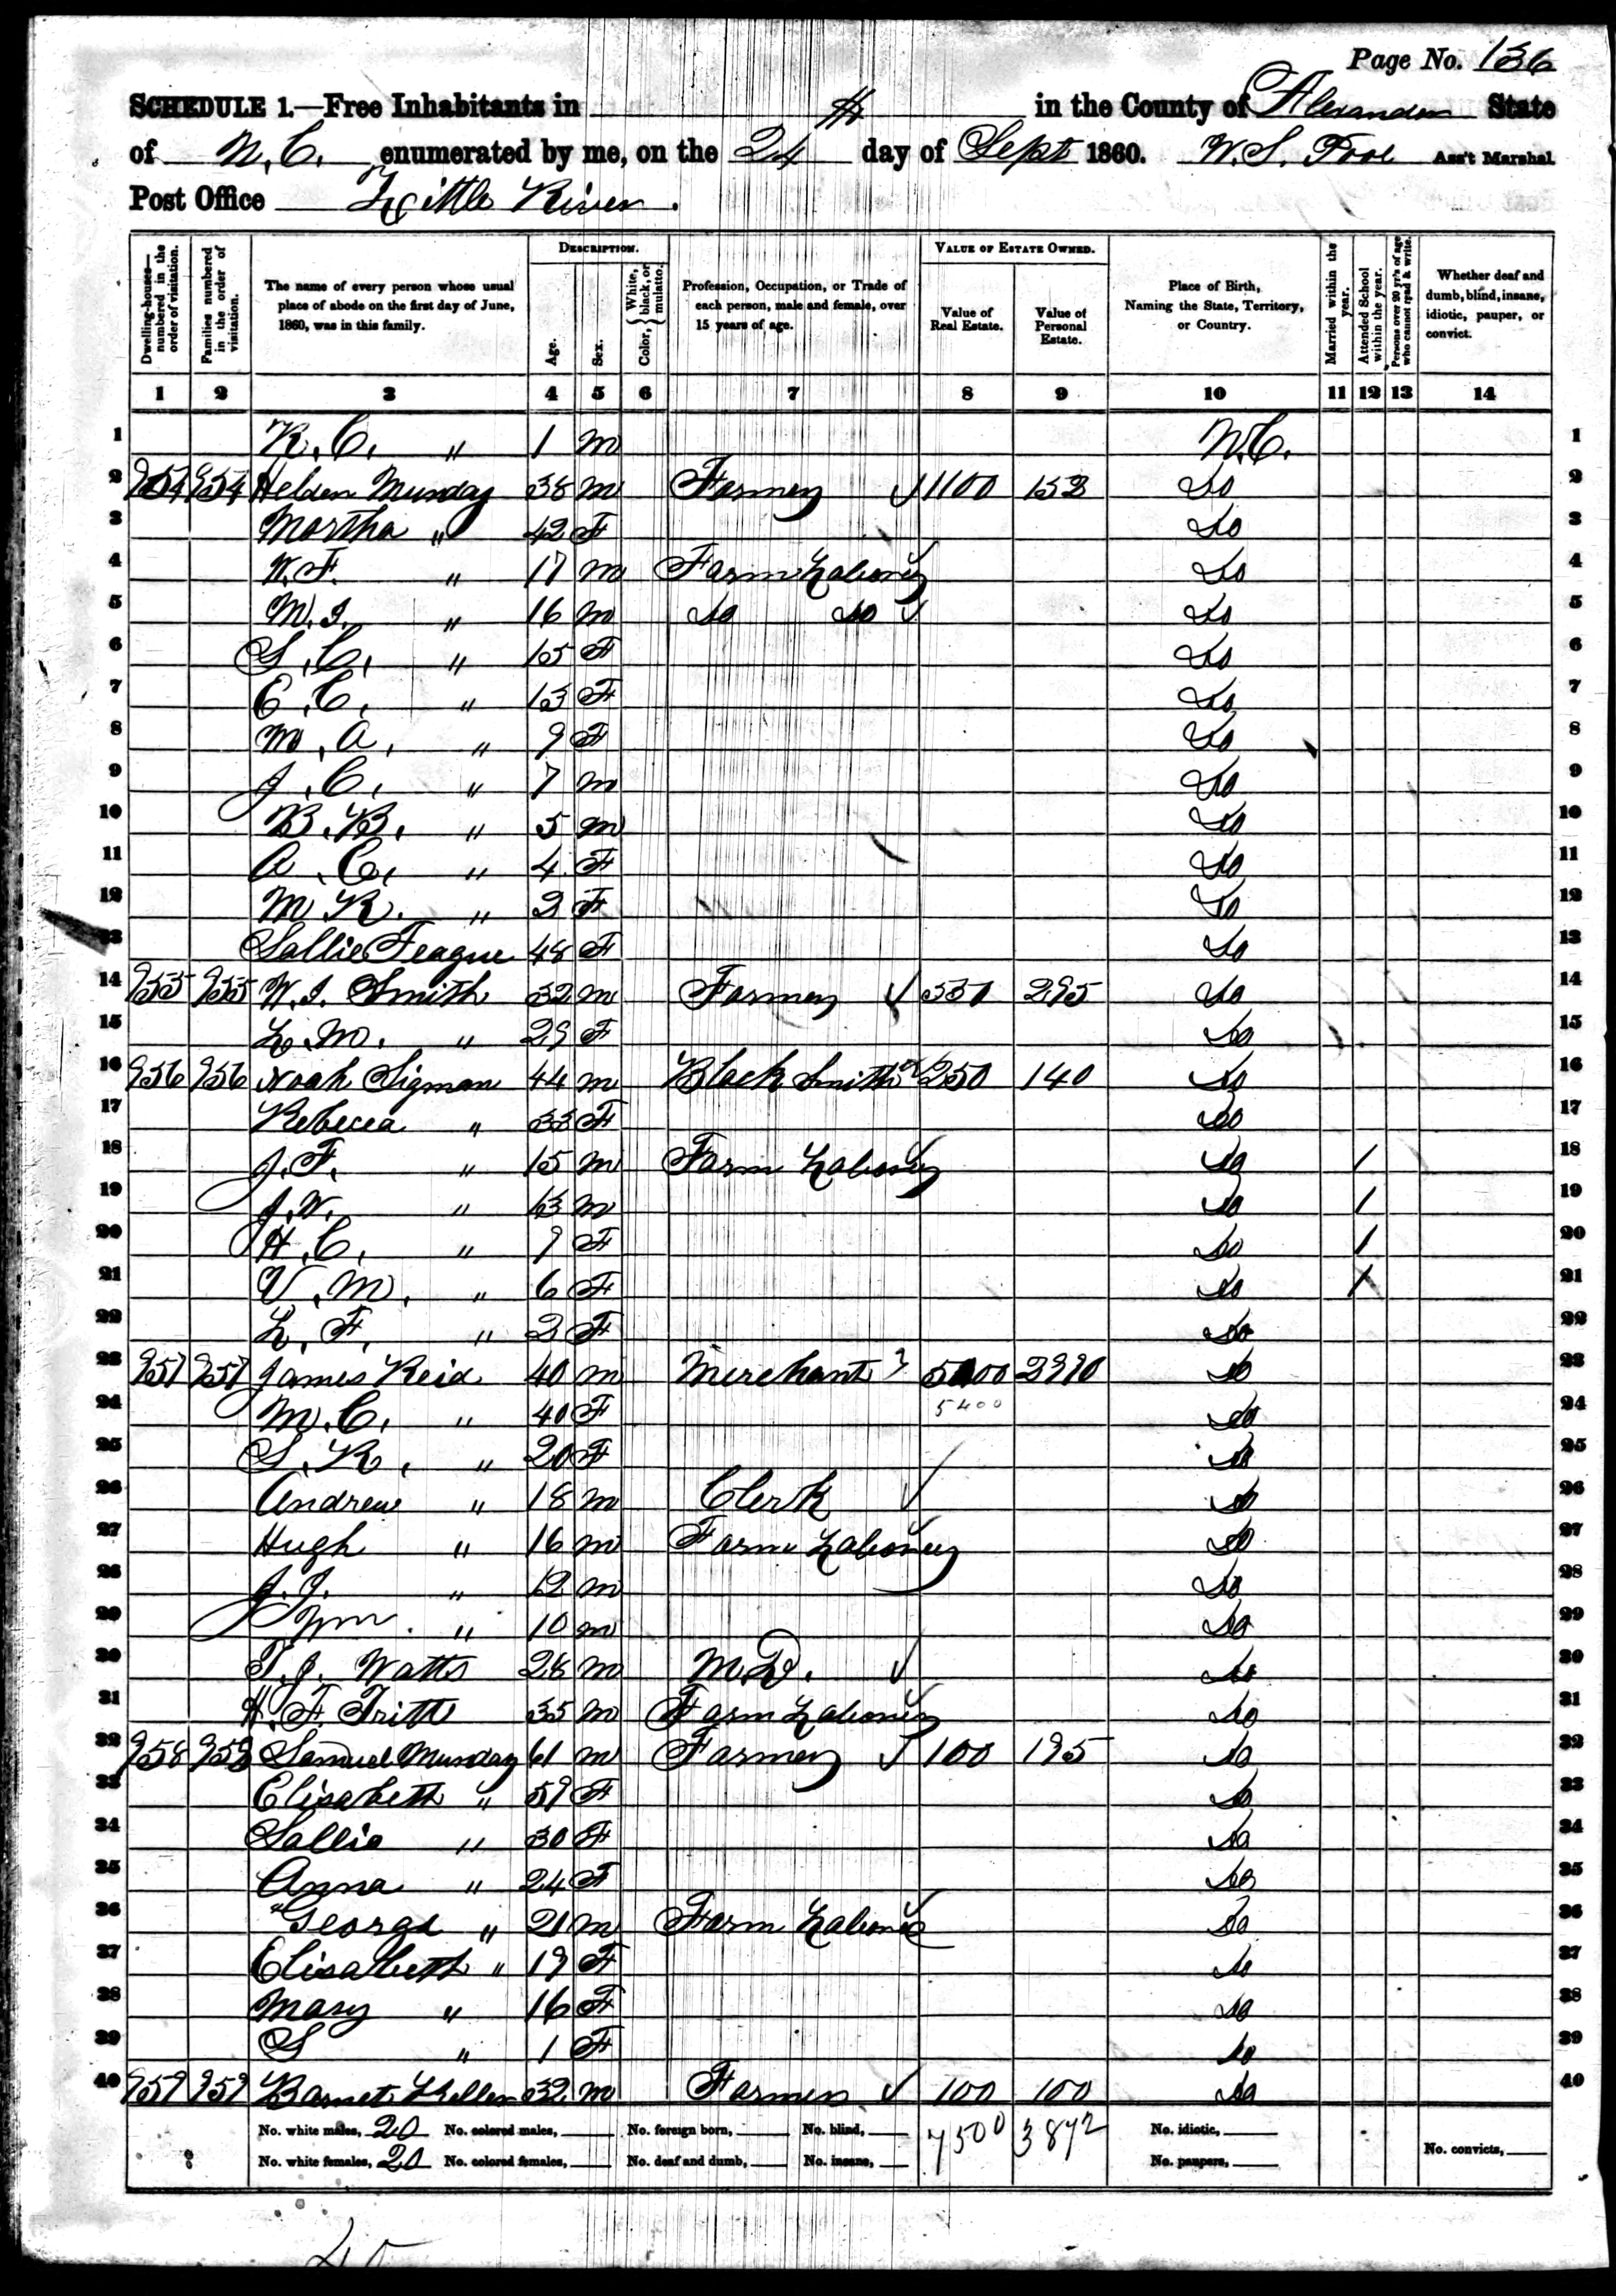 Page No. 136
SCHEDULE 1.—Free Inhabitants in in the County of Alexander State
of N.C. enumerated by me, on the 24 day of Sept 1860. W.S. Ass't Marshal.
Post Office Little River.
Dwelling-houses—numbered in the order of visitation.
Families numbered in the order of visitation.
The name of every person whose usual place of abode on the first day of June, 1860, was in this family.
DESCRIPTION.
Age.
Sex.
Color, { White, black, or mulatto.
Profession, Occupation, or Trade of each person, male and female, over 15 years of age.
VALUE OF ESTATE OWNED.
Value of Real Estate.
Value of Personal Estate.
Place of Birth, Naming the State, Territory, or Country.
Married within the year.
Attended School within the year.
Persons over 20 yr's of age who cannot read & write.
Whether deaf and dumb, blind, insane, idiotic, pauper, or convict.
1 2 3 4 5 6 7 8 9 10 11 12 13 14
1 R. C. " 1 m N.C. 1
2 954 954 Munday 38 m Farmer 1100 152 Do 2
3 Martha " 42 F Do 3
4 W. F. " 17 m Farm Laborer Do 4
5 M. J. " 16 m Do Do Do 5
6 S. C. " 15 F Do 6
7 E. C. " 13 F Do 7
8 M. A. " 9 F Do 8
9 J. C. " 7 m Do 9
10 B. B. " 5 m Do 10
11 A. C. " 4 F Do 11
12 M. R. " 2 F Do 12
13 Sallie Teague 48 F Do 13
14 955 955 W. J. Smith 32 m Farmer 550 295 Do 14
15 L. M. " 29 F Do 15
16 956 956 Noah Sigman 44 m Black Smith 250 140 Do 16
17 Rebecca " 33 F Do 17
18 J. F. " 15 m Farm Laborer Do / 18
19 J. W. " 13 m Do / 19
20 H. C. " 9 F Do / 20
21 V. M. " 6 F Do / 21
22 L. F. " 2 F Do 22
23 957 957 James Reid 40 m Merchant 5400 2990 Do 23
24 M. C. " 40 F 5400 Do 24
25 S. R. " 20 F Do 25
26 Andrew " 18 m Clerk Do 26
27 Hugh " 16 m Farm Laborer Do 27
28 J. J. " 12 m Do 28
29 Wm. " 10 m Do 29
30 T. J. Watts 28 m M.D. Do 30
31 H. F. Tritt 35 m Farm Laborer Do 31
32 958 958 Samuel Munday 61 m Farmer 100 195 Do 32
33 Elisabeth " 59 F Do 33
34 Sallie " 30 F Do 34
35 Anna " 24 F Do 35
36 George " 21 m Farm Laborer Do 36
37 Elisabeth " 19 F Do 37
38 Mary " 16 F Do 38
39 S " 1 F Do 39
40 959 959 Barnet 32 m Farmer 100 100 Do 40
No. white males, 20 No. colored males, No. foreign born, No. blind, 7500 3872 No. idiotic,
No. white females, 20 No. colored females, No. deaf and dumb, No. insane, No. paupers, No. convicts,
40